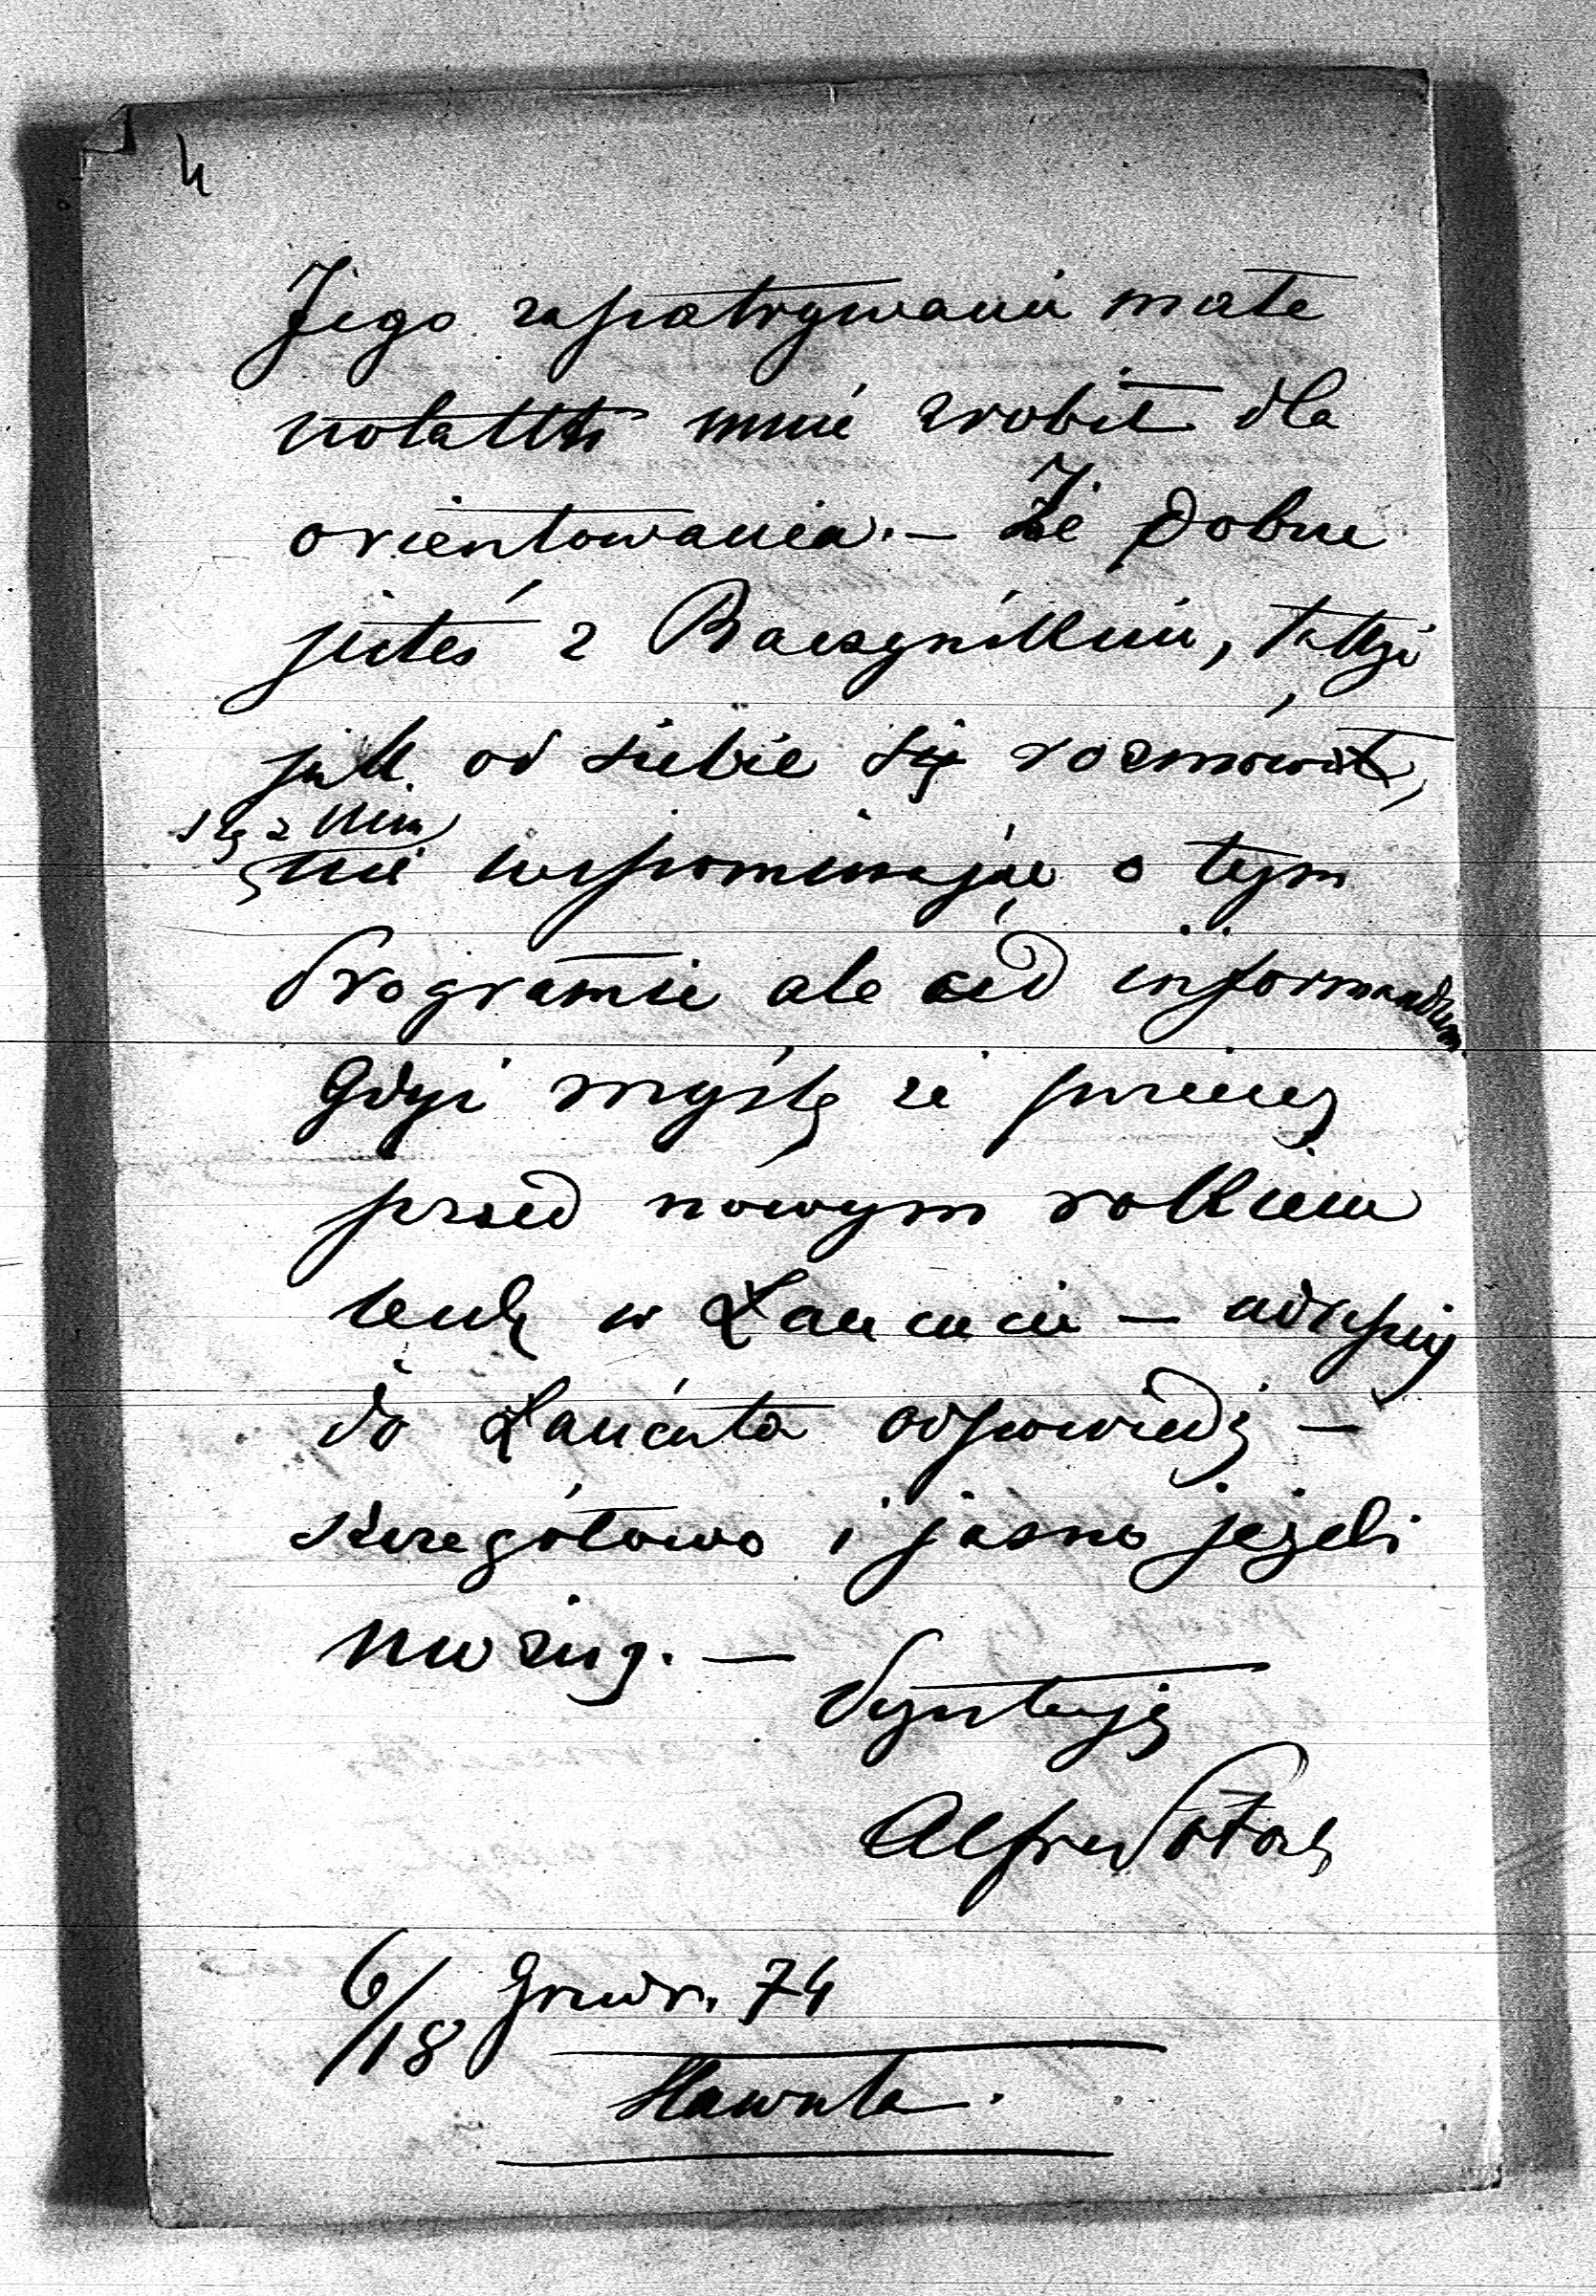 4
Jego zapatrywania małe
notatki mnie zrobić dla
orientowania. — Że dobrze
jesteś z Baczyńskim, także
jak od siebie się rozmówić,
się z nim
nie wspominając o tym
Programie ale ad informandum
Gdyż myślę że
przed nowym rokiem
będę w Łańcucie — adresuj
do Łańcuta odpowiedź —
szczegółowo i jasno jeżeli
możną. —
Ściskam
Alfred Potocki
6/18 Grudn. 74
Sławuta.